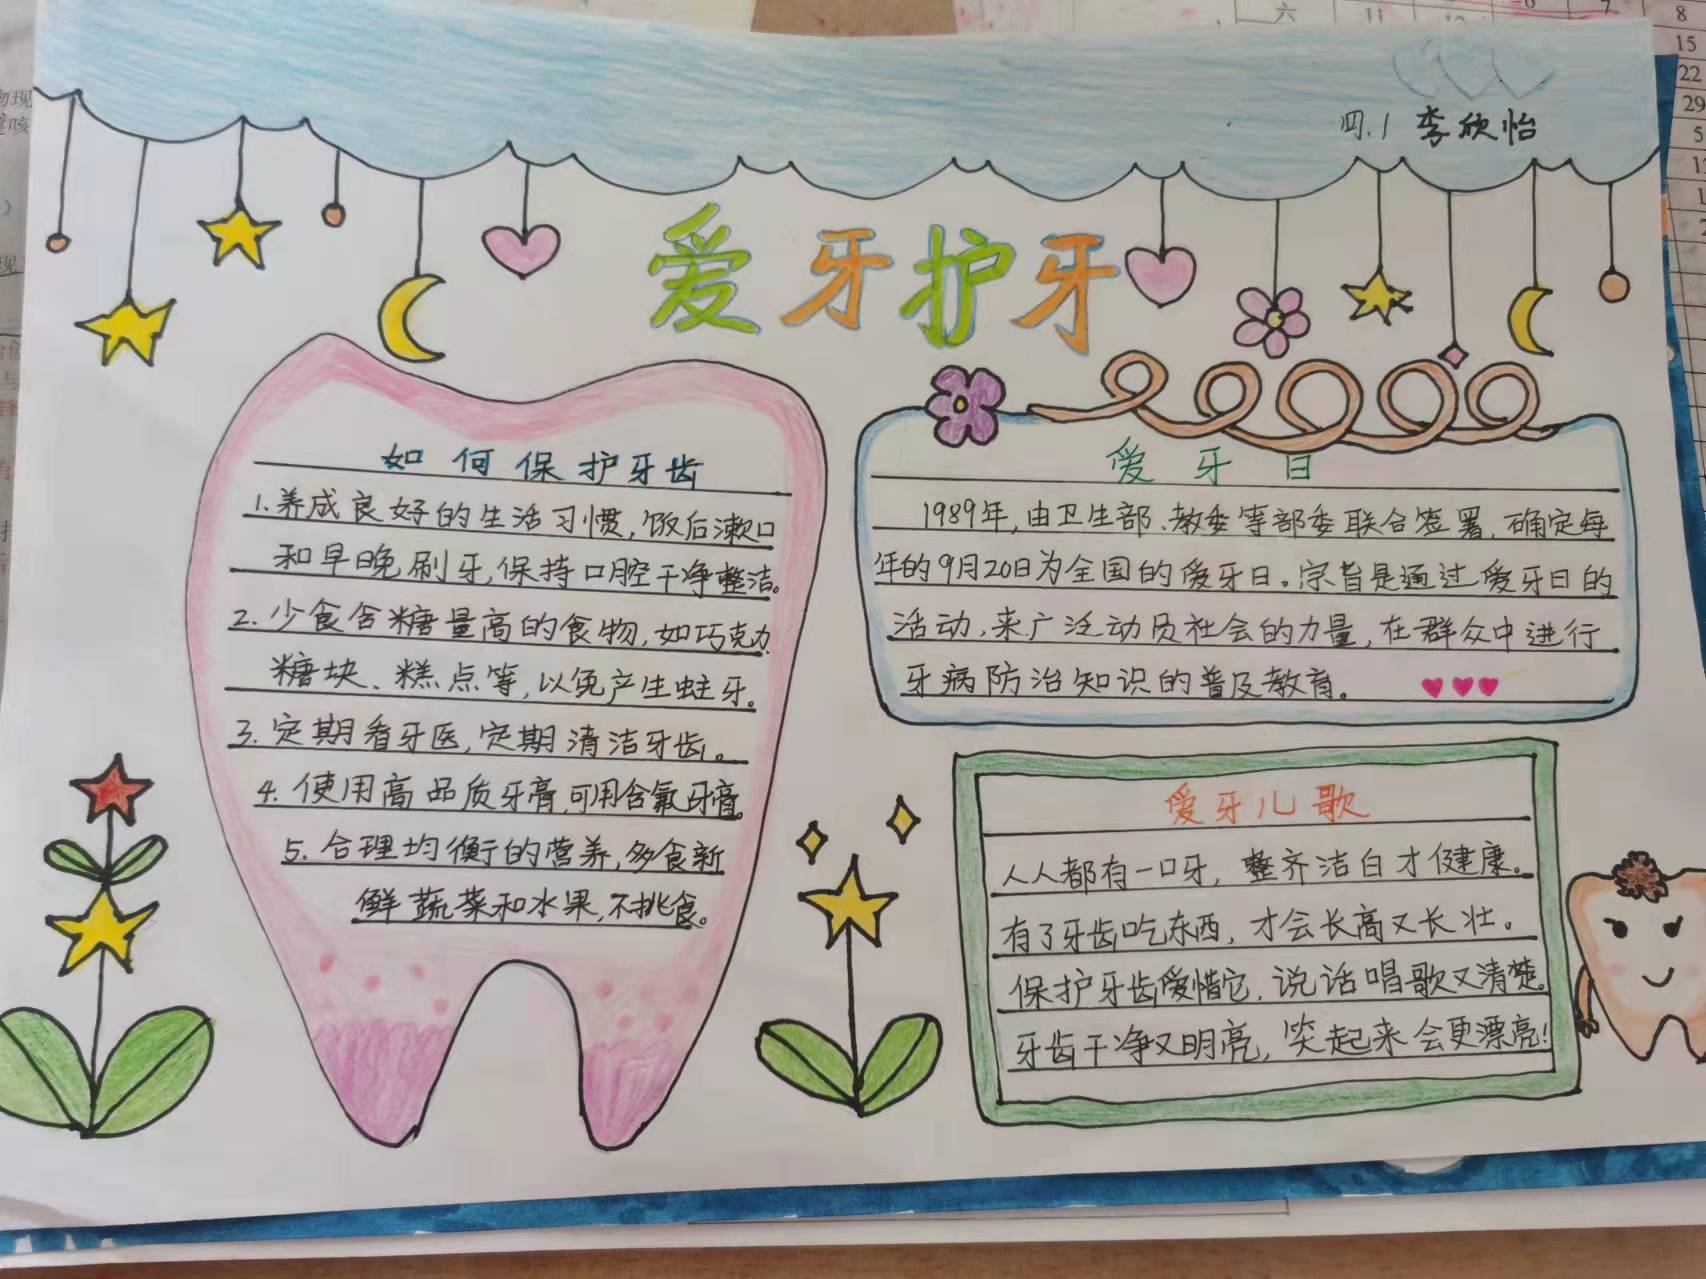 四.1 李欣怡
爱牙护牙
如何保护牙齿
1.养成良好的生活习惯,饭后漱口
和早晚刷牙,保持口腔干净整洁。
2.少食含糖量高的食物,如巧克力、
糖块、糕点等,以免产生蛀牙。
3.定期看牙医,定期清洁牙齿。
4.使用高品质牙膏,可用含氟牙膏。
5.合理均衡的营养,多食新
鲜蔬菜和水果,不挑食。
爱牙日
1989年,由卫生部、教委等部委联合签署,确定每
年的9月20日为全国的爱牙日。宗旨是通过爱牙日的
活动,来广泛动员社会的力量,在群众中进行
牙病防治知识的普及教育。
爱牙儿歌
人人都有一口牙,整齐洁白才健康。
有了牙齿吃东西,才会长高又长壮。
保护牙齿爱惜它,说话唱歌又清楚。
牙齿干净又明亮,笑起来会更漂亮!
六 11
8
15
22
29